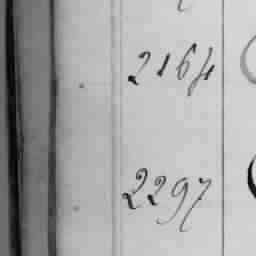 2164
2297